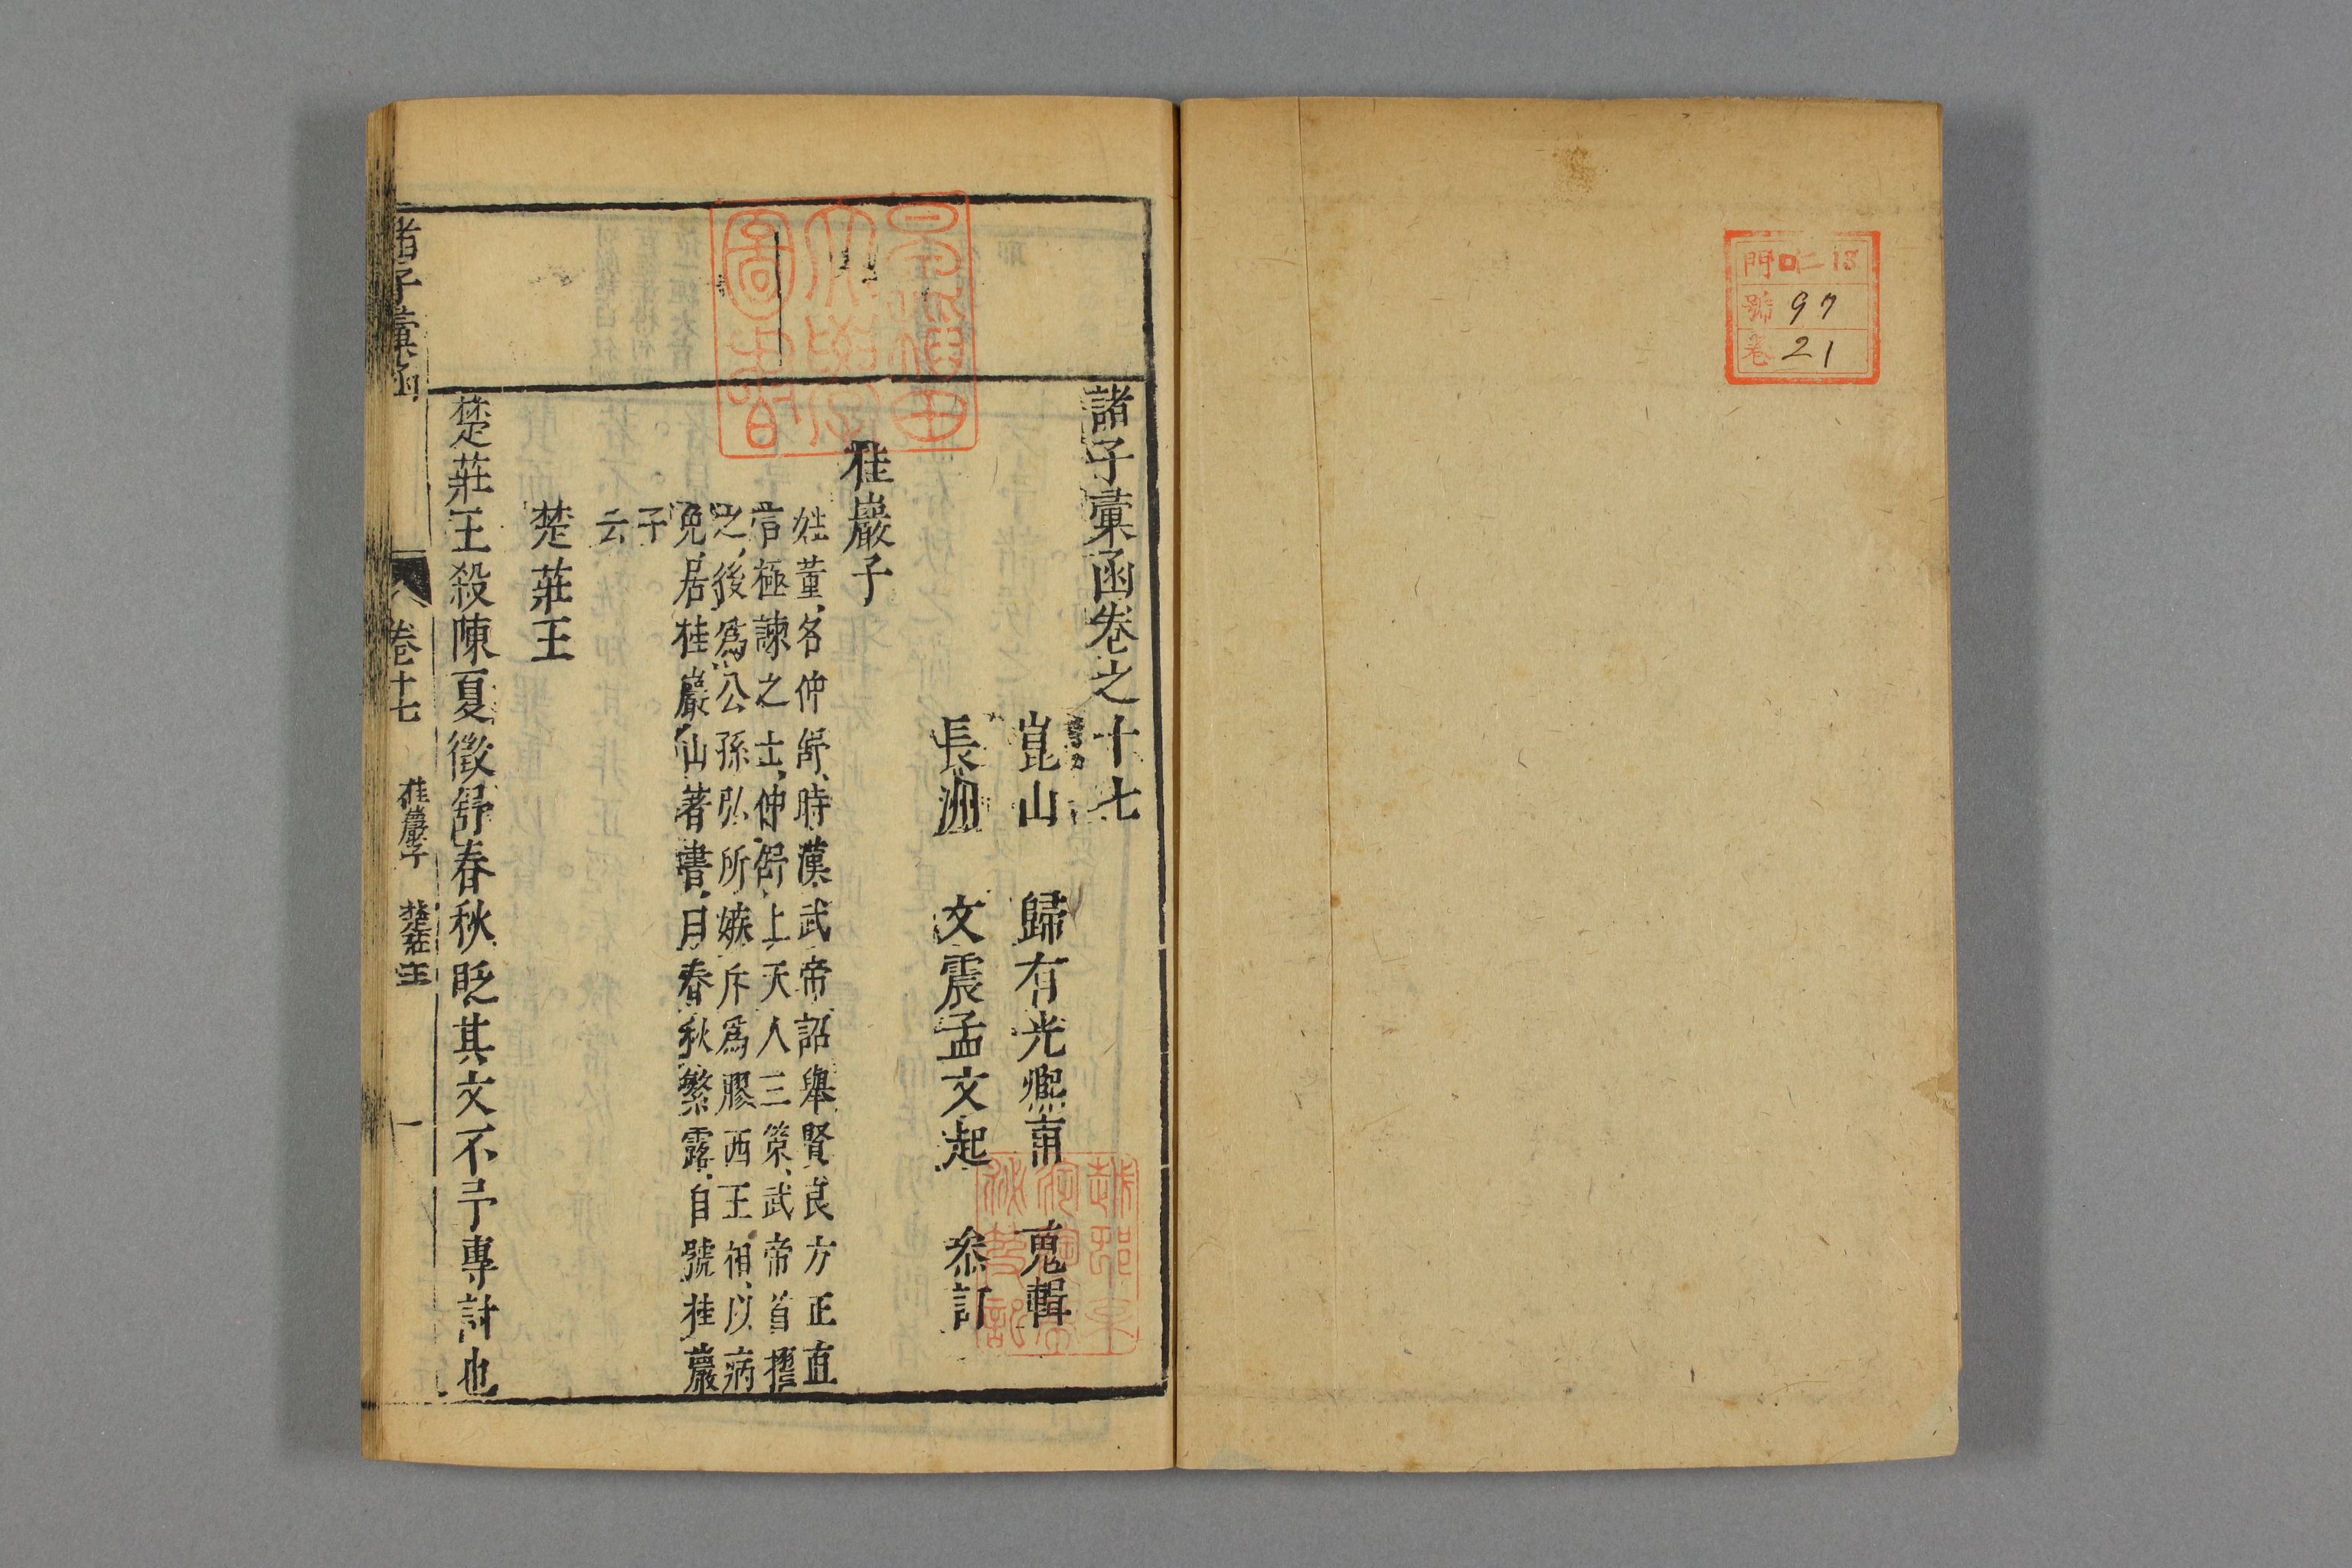 門 口仁 13
號 97
卷 21
諸子彙函卷之十七
崑山 歸有光熙甫 蒐輯
長洲 文震孟文起 叅訂
桂巖子
姓董名仲舒時漢武帝詔舉賢良方正直
言極諫之士仲舒上天人三策武帝首擢
之後為公孫弘所嫉斥爲膠西王相以病
免居桂巖山著書曰春秋繁露自號桂巖
子
云
楚莊王
楚莊王殺陳夏徵舒春秋貶其文不予專討也
諸子彙函 卷十七 桂巖子 楚莊王 一